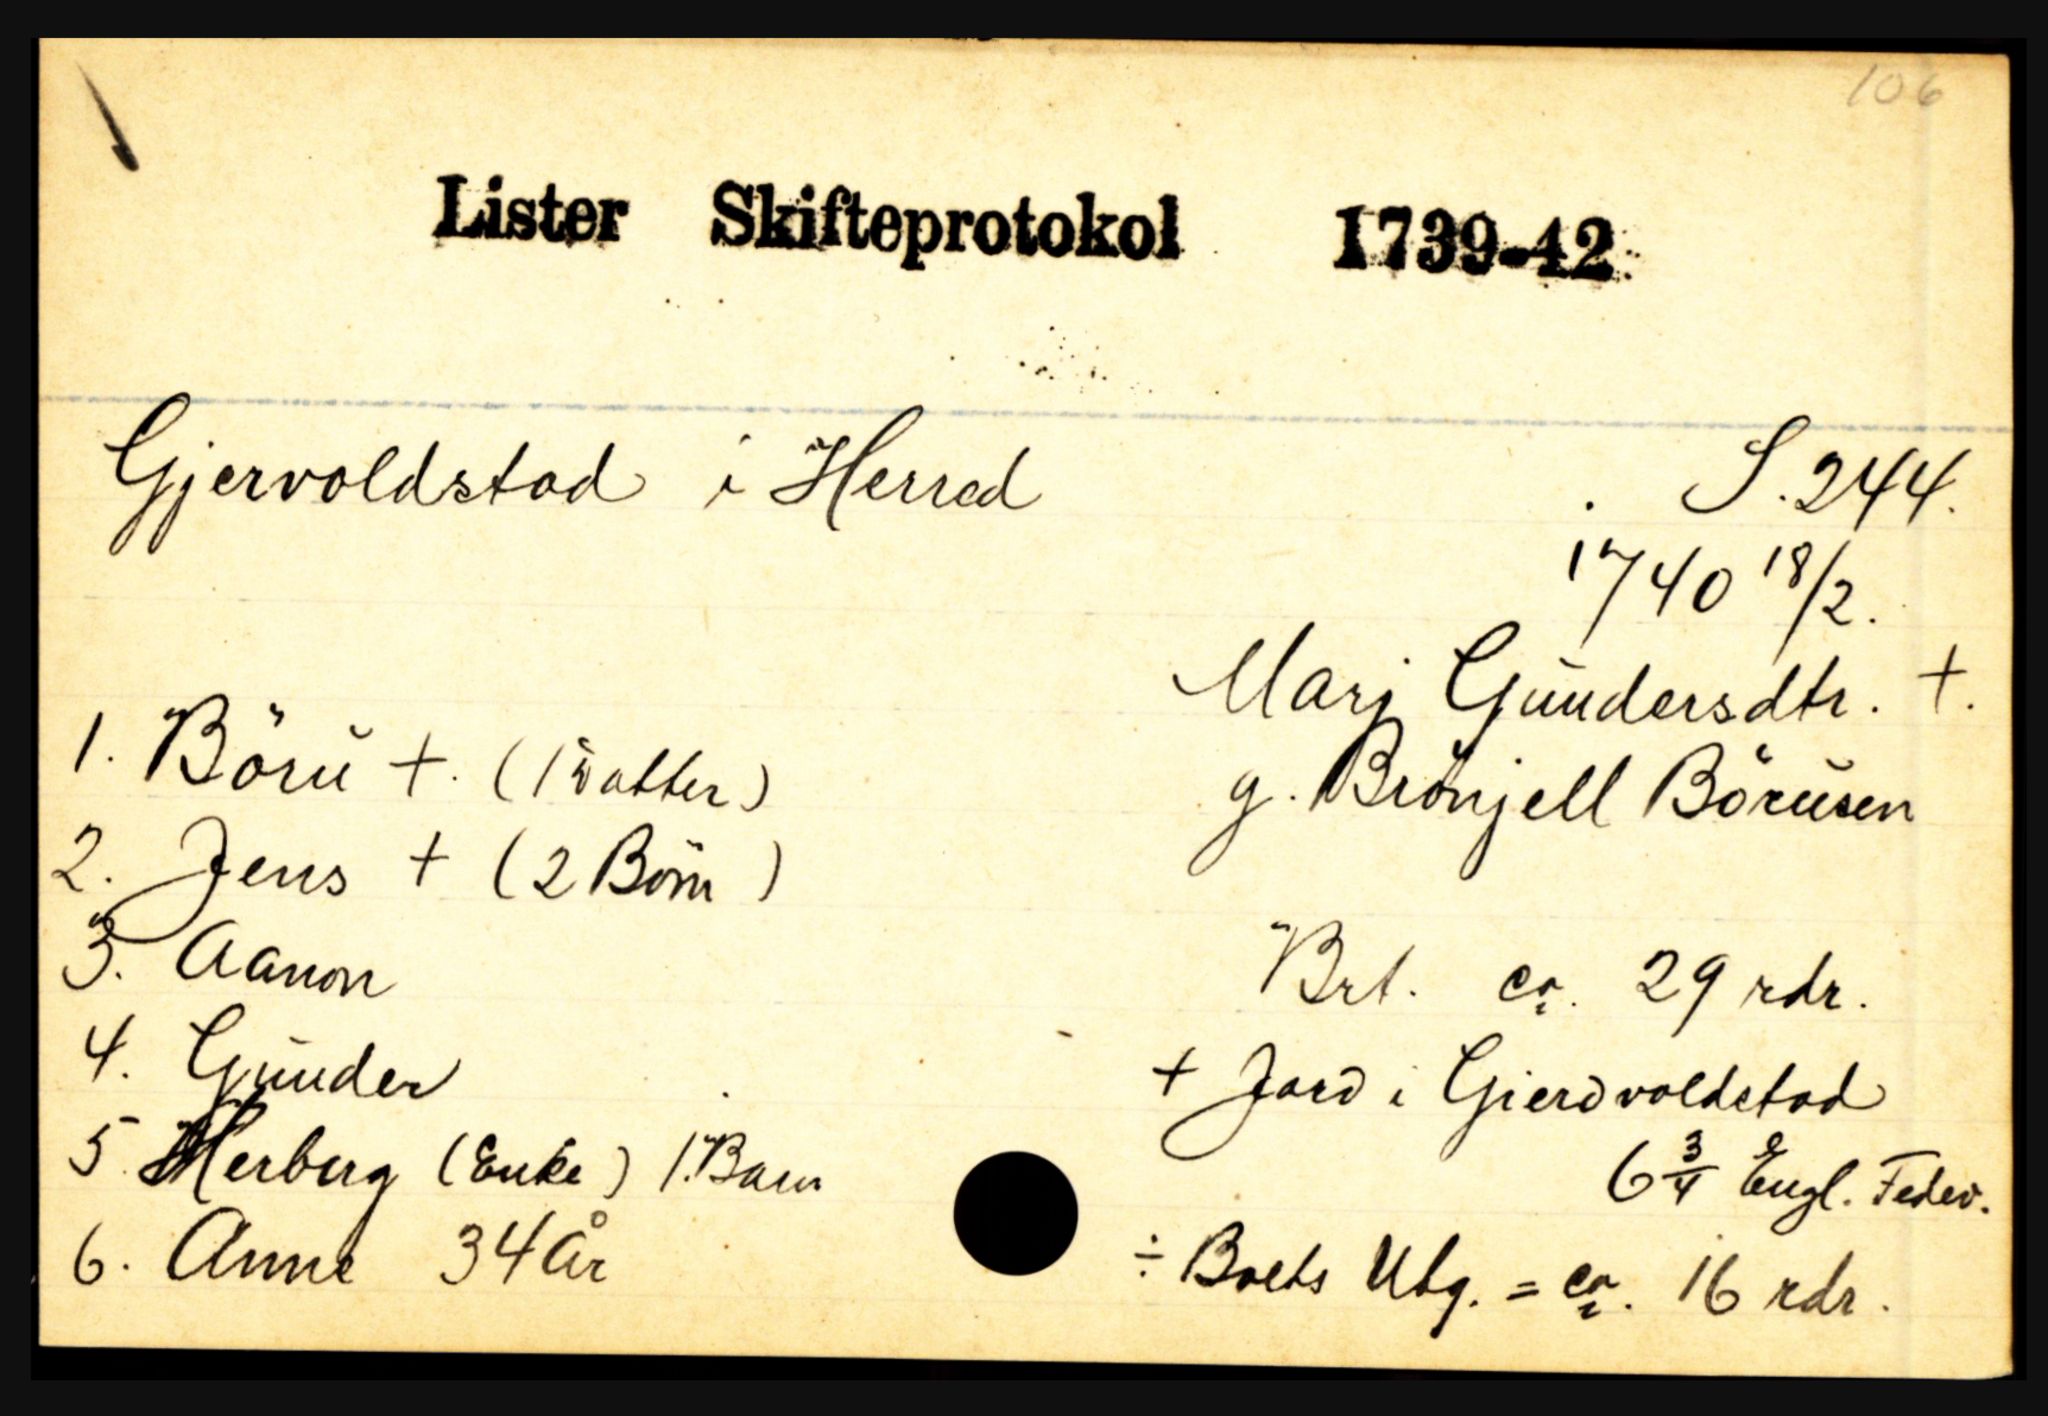 106
Lister Skifteprotokol 1739-42
Gjervoldstad i Herred
S. 244.
1740 18/2.
Marj Gundersdtr. +.
g. Brönjell Börusen
1. Böru +. (1 Datter)
2. Jens + (2 Börn)
3. Aanon
4. Gunder
5. Herberg (Enke) 1. Barn
6. Anne 34 År
Brt. ca. 29 rdr.
+ Jord i Gierdvoldstad
6 3/4 Engl. Federv.
÷ Boets Utg. = ca. 16 rdr.